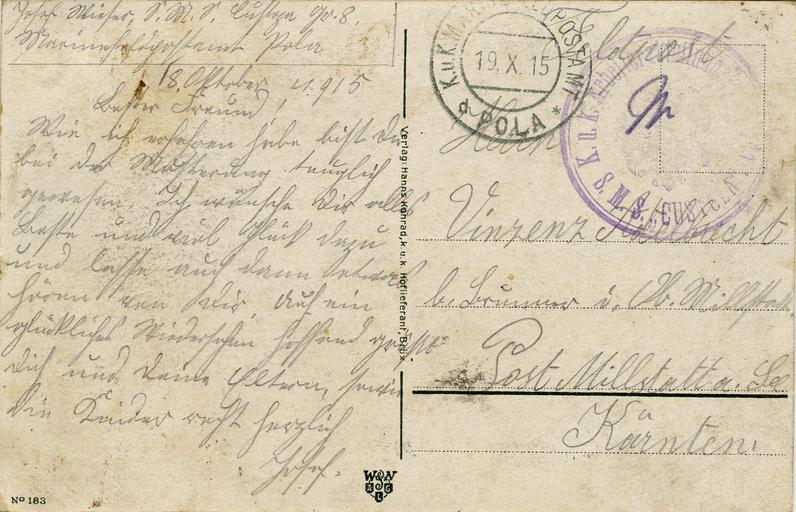 Josef Wieser, S.M.S. Custoza Gr. 8.
Marinefeldpostamt Pola
18. Oktober 1915
Bester Freund!
Wie ich erfahren habe bist Du
bei der Musterung tauglich
gewesen. Ich wünsche Dir alles
Beste und viel Glück dazu
und lasse auch dann etwas
hören von Dir. Auf ein
glückliches Wiedersehen hoffend grüßt
Dich und Deine Eltern, sowie
die Kinder recht herzlich
Josef.
No 183
Verlag: Hanns Konrad, k. u. k. Hoflieferant,
W N
K. u. K. MARINEFELDPOSTAMT
19. X. 15
d POLA *
K. u. K.
S. M. S. CUSTOZA
Feldpost
Herrn
Vinzenz
b. Brunner in Ob. Millstatt
Post Millstatt a. See
Kärnten